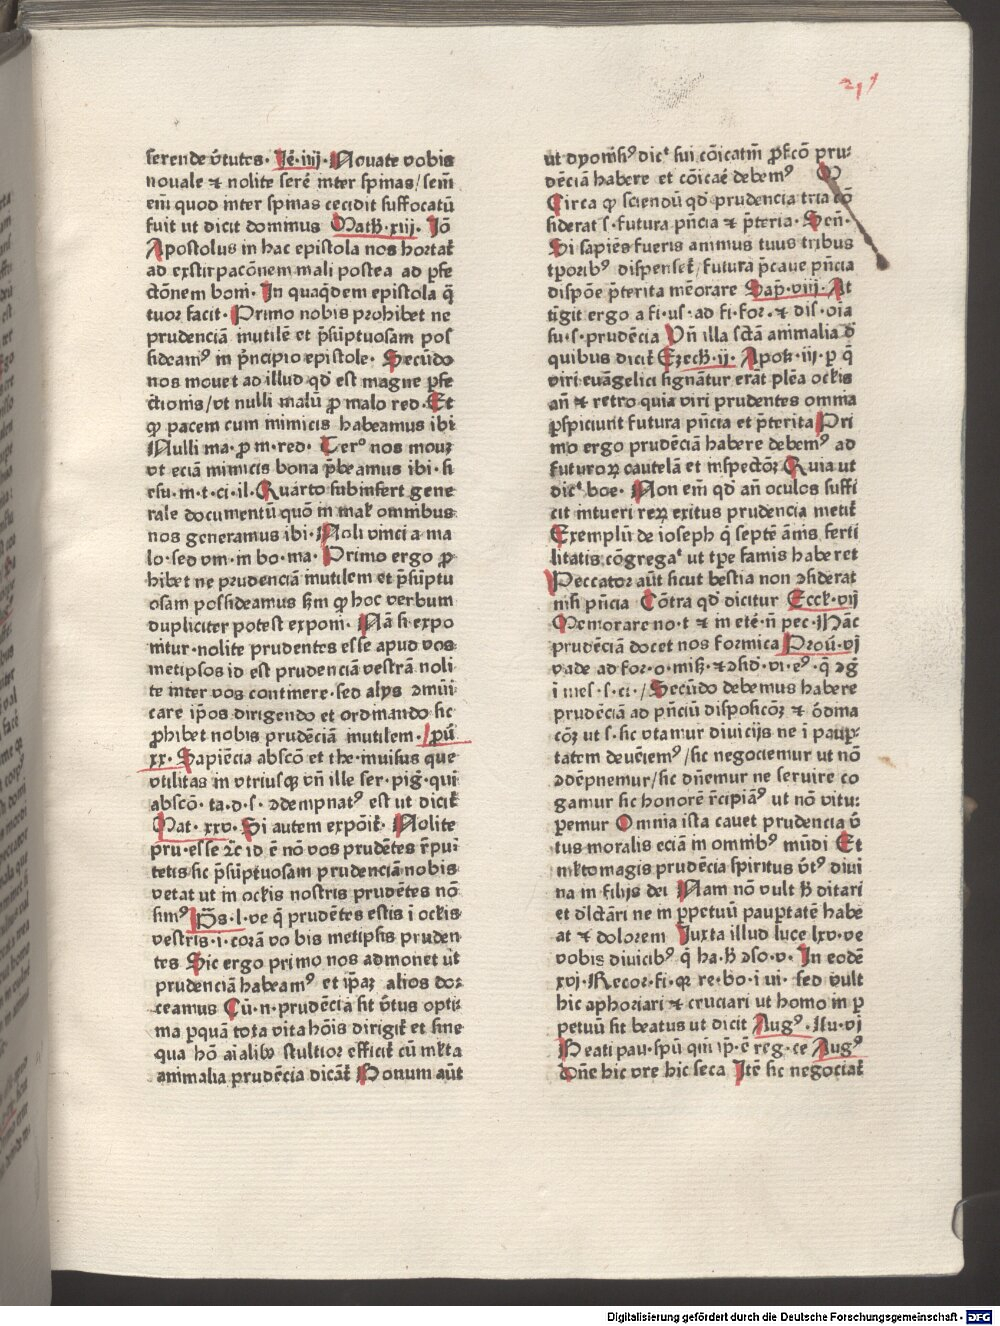 serende v̄tutes· Je᷑·iiij· Nouate vobis
nouale ⁊ nolite sere᷑ inter spinas/sem̄
em̄ quod inter spinas cecidit suffocatū
fuit ut dicit dominus Math̄·xiij· Jō
Apostolus in hac epistola nos hortat᷑
ad exstirpacōnem mali postea ad p̲fe
ctōnem boni· In quaqdem epistola q̄
tuor facit· Primo nobis prohibet ne
prudenciā inutilē et p̄sūptuosam pos
sideamꝰ in p̄ncipio epistole· Secūdo
nos mouet ad illud qd̄ est magne p̲fe
ctionis/ut nulli malū ꝓ malo red·Et
ꝙ pacem cum inimicis habeamus ibi
Nulli ma·ꝓ m·red· Terᵒ nos mouꝫ
vt eciā inimicis bona p̄beamus ibi·si
esu·in·t·ci·il·Quarto subinfert gene
rale documentū quō in mal᷑ omnibus
nos generamus ibi·Noli vinci a ma
lo·sed vin·in bo·ma· Primo ergo ꝓ
hibet ne prudenciā inutilem et p̄sūptu
osam possideamus s̄m ꝙ hoc verbum
dupliciter potest exponi· Nā si expo
nitur·nolite prudentes esse apud vos
metipsos id est prudenciā vestrā noli·
te inter vos continere·sed alijs ↄmūi:
care ip̄os dirigendo et ordinando sic
ꝓhibet nobis prudenciā inutilem· Prū
xx· Sapiēcia abscō et the·inuisus que
vtilitas in vtriusꝙ vn̄ ille ser·piḡ·qui
abscō·ta·d·s· ↄdempnatꝰ est ut dicit᷑
Mat·xxv· Si autem expōit᷑· Nolite
pru·esse ⁊c̄ id ē nō vos prudētes r̄pu:
tetis/sic p̄sūptuosam prudenciā nobis·
vetat ut in oc᷑lis nostris prudētes nō
simꝰ Ps̄·l·ve q̄ prudētes estis i oc᷑lis·
vestris·i·corā vobis metipsis pruden
tes Sic ergo primo nos admonet ut
prudenciā habeamꝰ et ip̄aꝫ alios do:
ceamus Cū·n·prudēcia sit v̄tus opti:
ma p̲quā tota vita hōis dirigit᷑ et sine
qua hō aīalibꝰ stultior efficit᷑ cū ml᷑ta
animalia prudēcia dicāt᷑ Bonum aūt
ut dyoniſiꝰ dic᷑ sui cōicatiū ꝓfc᷑ō pru:
dēciā habere et cōicare debemꝰ
Circa ꝙ sciendū qd̄ prudencia tria cō
siderat s·futura pn̄cia ⁊ p̄teria· Sen̄·
Si sapiēs fueris animus tuus tribus
tp̲oribꝰ dispenset᷑/futura p̄caue pn̄cia
dispōe p̄terita memorare Sap̄·viij· At
tigit ergo a fi·us·ad fi·for·⁊ dis·oīa
su·s·prudēcia Vn̄ illa sc̄tā animalia d̄
quibus dicit᷑ Ezech̄·ij· Apoc᷑·iij·p q̄
viri euāgelici signātur erāt plēa oc᷑lis
an̄ ⁊ retro quia viri prudentes omnia
p̲spiciunt futura pn̄cia et p̄terita Pri
mo ergo prudēciā habere debemꝰ ad
futuroꝝ cautelā et inspectōꝫ Quia ut
dic᷑ boe· Non em̄ qd̄ an̄ oculos suffi
cit intueri reꝝ exitus prudencia metit᷑
Exemplū de ioseph q̄ septē ānis ferti
litatis cōgrega᷑ ut tp̲e famis haberet
Peccator aūt sicut bestia non ↄsiderat
nisi pn̄cia Cōtra qd̄ dicitur Ecc᷑l·vij
Memorare no·t ⁊ in etē·n̄ pec·Hāc
prudēciā docet nos formica Prou̅·vj
vade ad for·o·miß·⁊ ↄsid̄·vi·eꝰ·q̄ ↄg̅
i mes·s·ci·/Secūdo debemus habere
prudēciā ad pn̄ciū disposicōꝫ ⁊ ōdina
cōꝫ ut s·sic vtamur diuicijs ne i paup̲:
tatem deuēiemꝰ/sic negociemur ut nō
ↄdēpnemur/sic dn̄emur ne seruire co
gamur sic honorē r̄cipiāꝰ ut nō vitu:
p̲emur Omnia ista cauet prudencia v̄
tus moralis eciā in omnibꝰ mūdi Et
ml᷑tomagis prudēcia spiritus v̄tꝰ diui
na in filijs dei Nam nō vult h̄ ditari
et dl᷑ctāri ne in p̲petuū paup̲tatē habe
at ⁊ dolorem Juxta illud luce lxv·ve
vobis diuicibꝰ q̄ ha·h̄ ↄso·v· In eodē
xvj·Recor·fi·qꝛ re·bo·i vi· sed vult
hic aphoriari ⁊ cruciari ut homo in p̲
petuū sit beatus ut dicit Augꝰ·Nu·vj
Beati pau·spū qm̄ ip̄·ē reg·ce Augꝰ
Dn̄e hic vre hic seca Itē sic negociat᷑
Digitalisierung gefördert durch die Deutsche Forschungsgemeinschaft · DFG